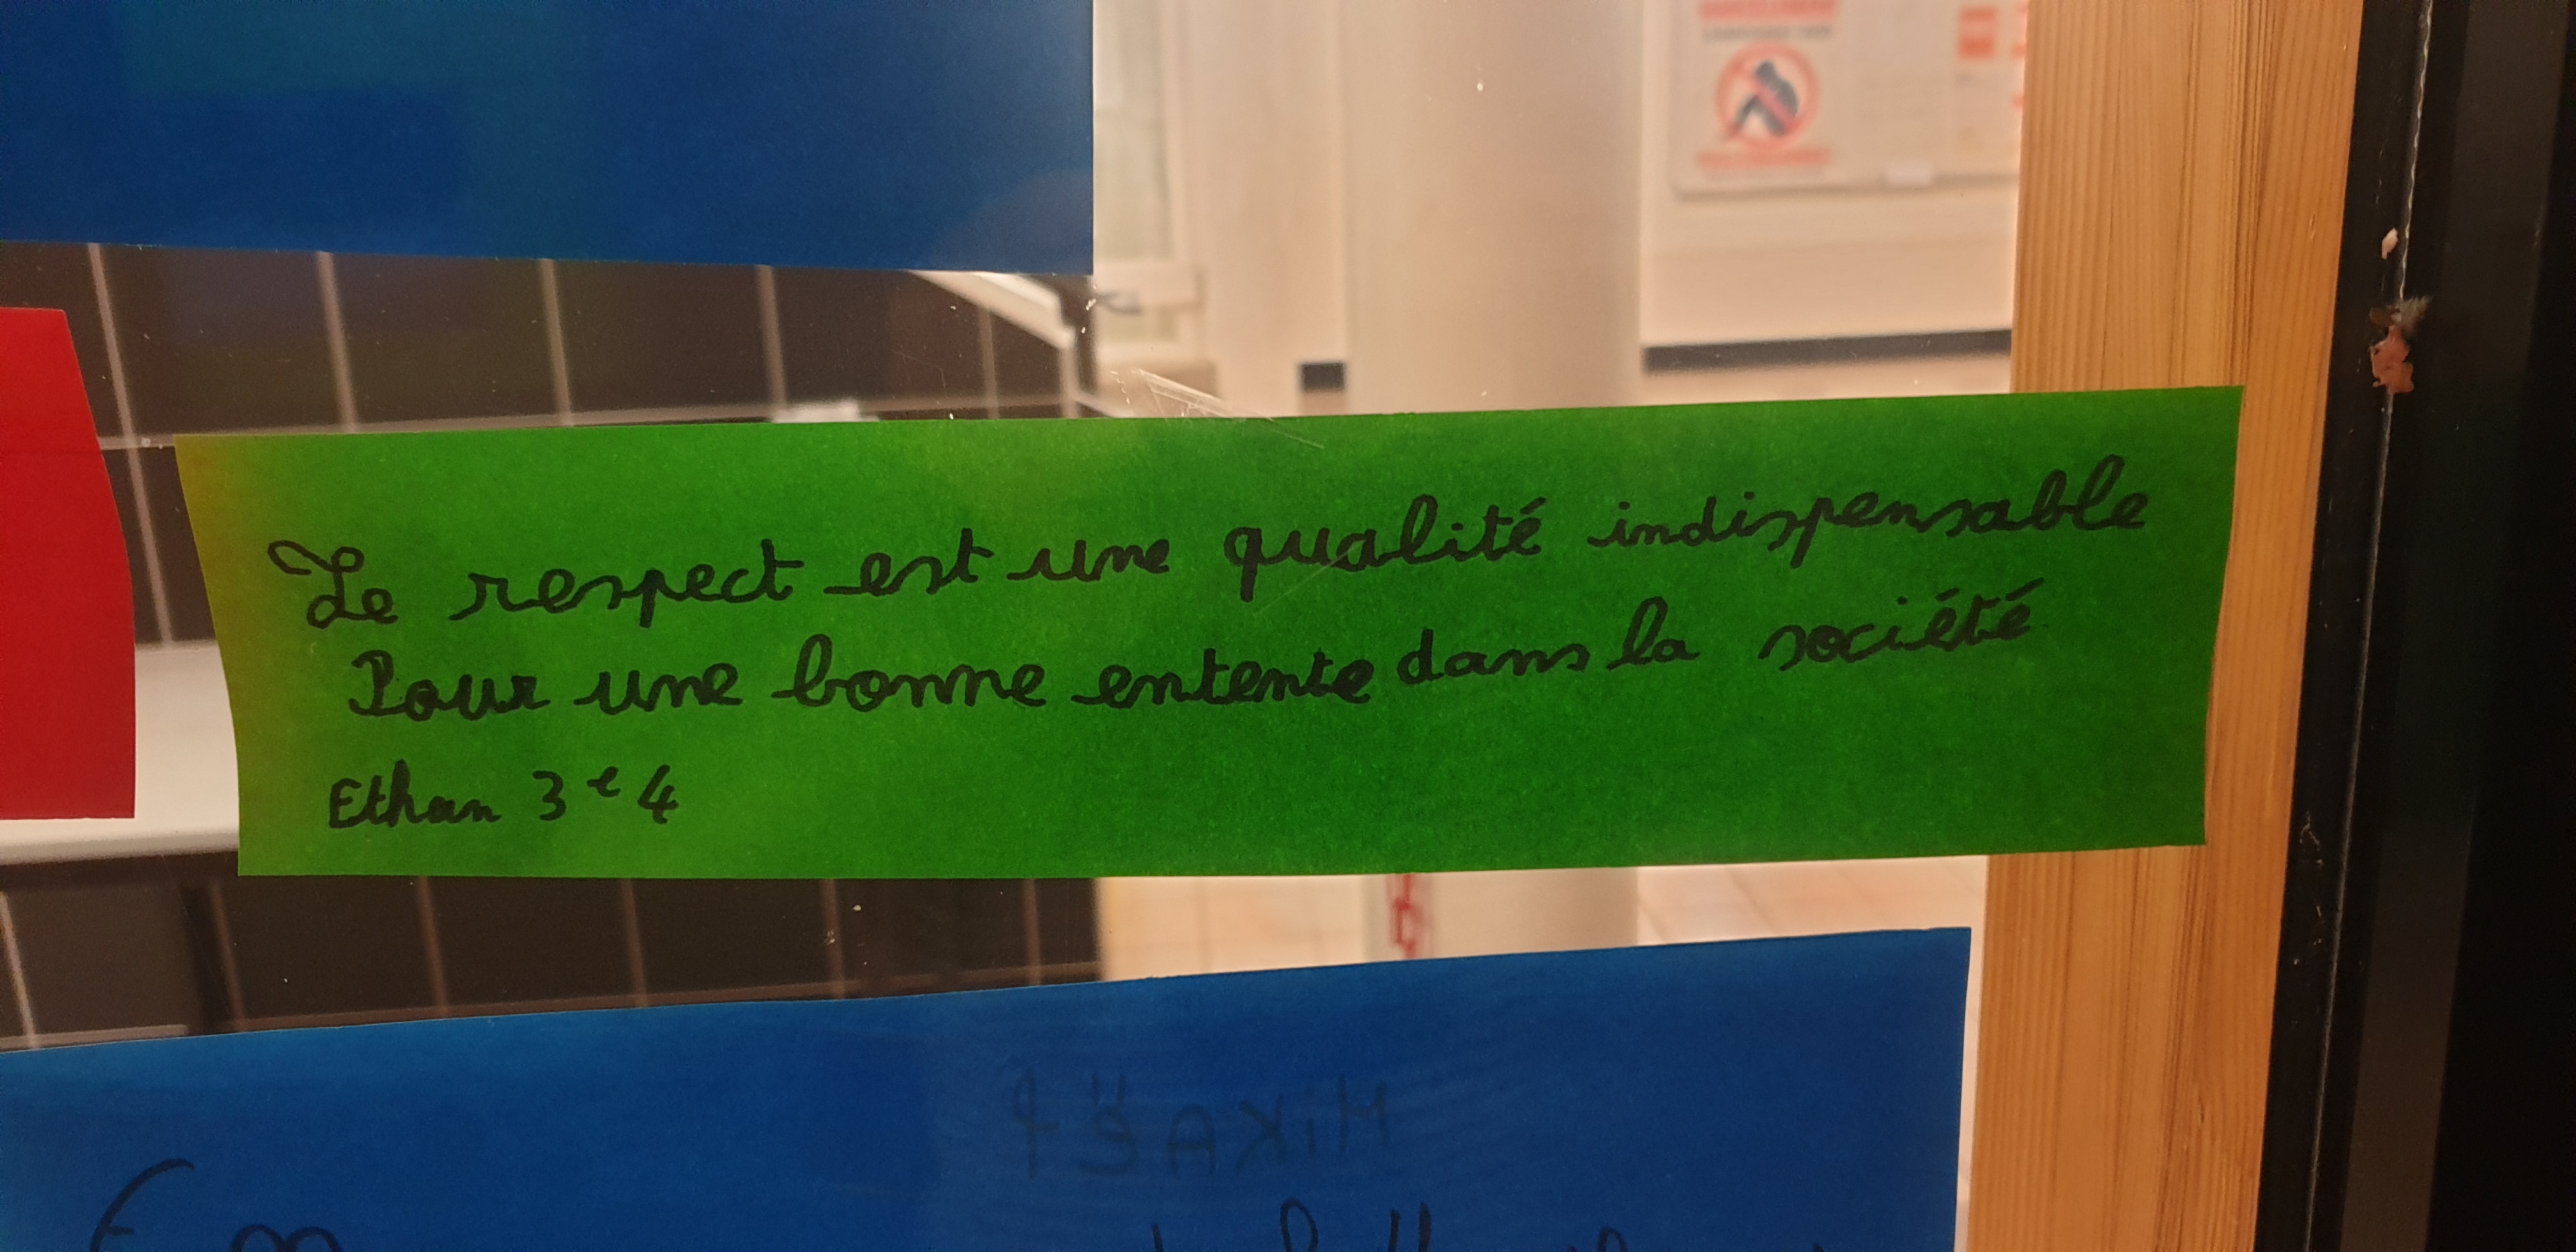 Le respect est une qualité indispensable
Pour une bonne entente dans la société
Ethan 3e4
MiKAËl